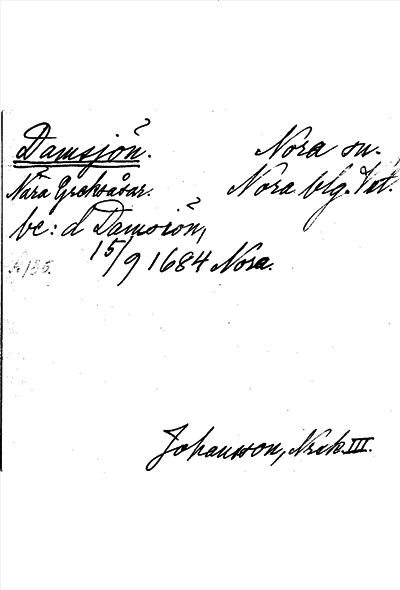 Damsjön.
Nora sn.
Nära Greksåsar.
Nora blg. Vstl.
be: d Damsiön,
15/9 1684 Nora.
A135.
Johansson, Nrcke III.